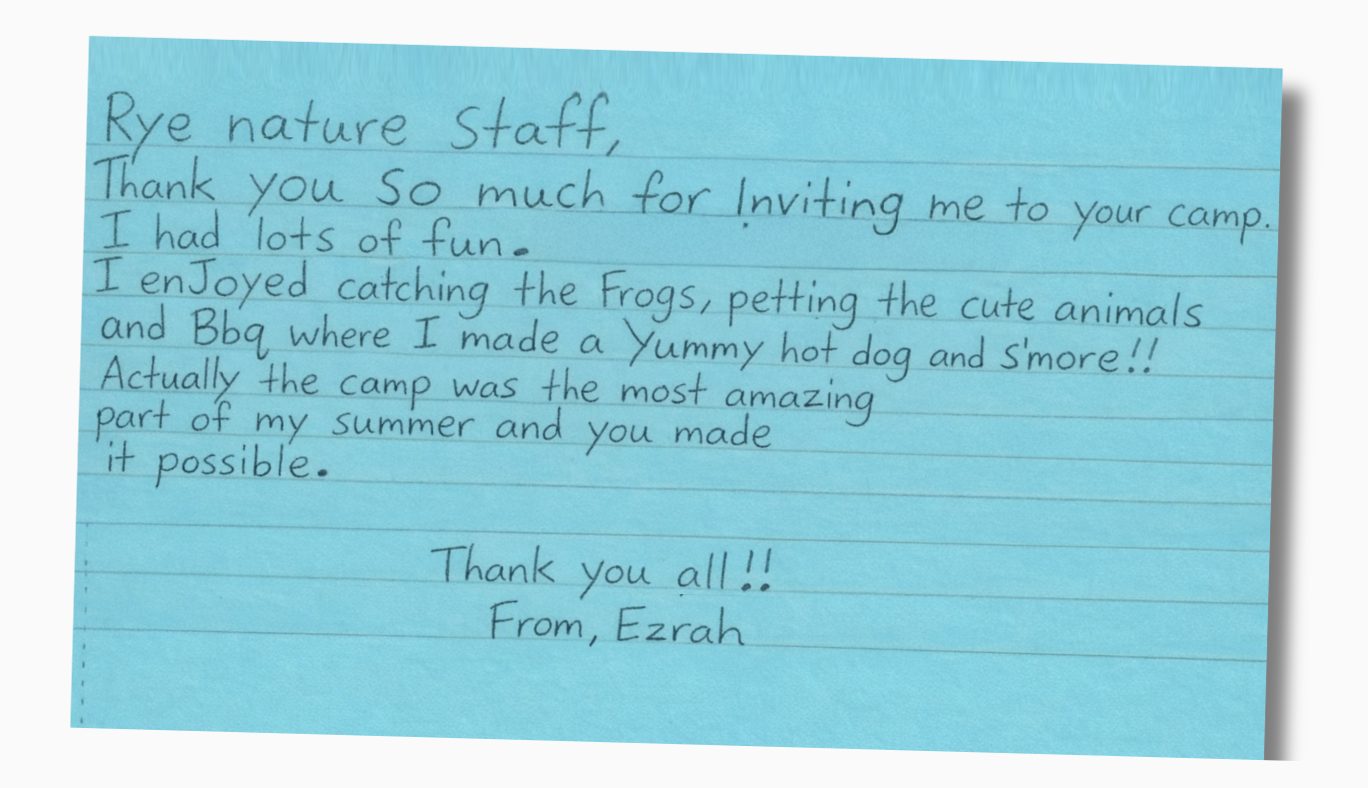 Rye nature Staff,
Thank you So much for Inviting me to your camp.
I had lots of fun.
I enJoyed catching the Frogs, petting the cute animals
and Bbq where I made a Yummy hot dog and S'more!!
Actually the camp was the most amazing
part of my summer and you made
it possible.
Thank you all!!
From, Ezrah